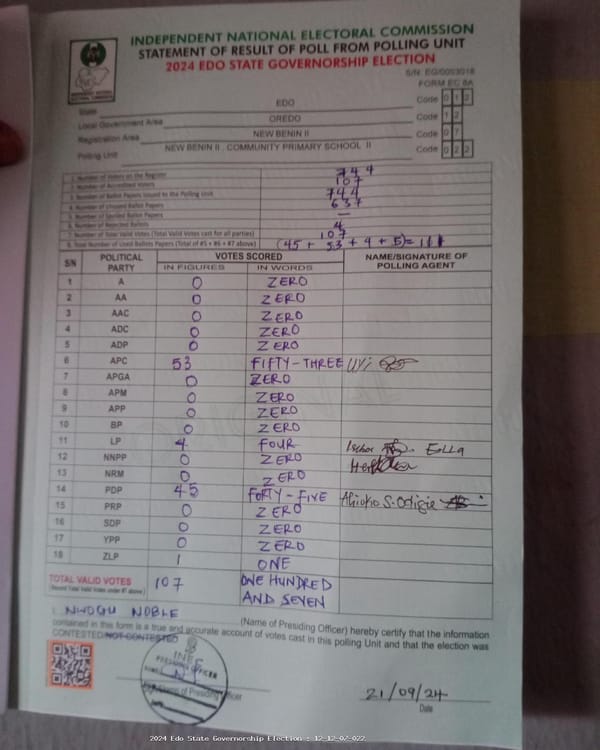 INDEPENDENT NATIONAL ELECTORAL COMMISSION
STATEMENT OF RESULT OF POLL FROM POLLING UNIT
2024 EDO STATE GOVERNORSHIP ELECTION
FORM EC 8A
State EDO Code 0 1 2
Local Government Area OREDO Code 1 2
Registration Area NEW BENIN II Code 0 7
Polling Unit NEW BENIN II . COMMUNITY PRIMARY SCHOOL II Code 0 2 2
1. Number of Voters on the Register 744
2. Number of Accredited Voters 107
3. Number of Ballot Papers Issued to the Polling Unit 744
4. Number of Unused Ballot Papers 637
5. Number of Spoiled Ballot Papers —
6. Number of Rejected Ballots 4
7. Number of Total Valid Votes (Total Valid Votes cast for all parties) 107
8. Total Number of Used Ballots Papers (Total of #5 + #6 + #7 above) (45 + 53 + 4 + 5) = 111
SN POLITICAL PARTY VOTES SCORED NAME/SIGNATURE OF POLLING AGENT
IN FIGURES IN WORDS
1 A 0 ZERO
2 AA 0 ZERO
3 AAC 0 ZERO
4 ADC 0 ZERO
5 ADP 0 ZERO
6 APC 53 FIFTY-THREE UYi
7 APGA 0 ZERO
8 APM 0 ZERO
9 APP 0 ZERO
10 BP 0 ZERO
11 LP 4 FOUR
12 NNPP 0 ZERO
13 NRM 0 ZERO
14 PDP 45 FORTY-FIVE
15 PRP 0 ZERO
16 SDP 0 ZERO
17 YPP 0 ZERO
18 ZLP 1 ONE
TOTAL VALID VOTES 107 ONE HUNDRED AND SEVEN
I, NWOGU NOBLE (Name of Presiding Officer) hereby certify that the information
contained in this form is a true and accurate account of votes cast in this polling Unit and that the election was
CONTESTED/NOT CONTESTED
INEC
PRESIDING OFFICER
21/09/24
Date
2024 Edo State Governorship Election : 12-12-07-022